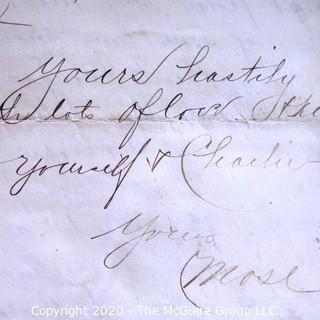 Yours hastily
lots of love
yourself & Charlie
Yours
Mose
Copyright 2020 - The McGuire Group LLC